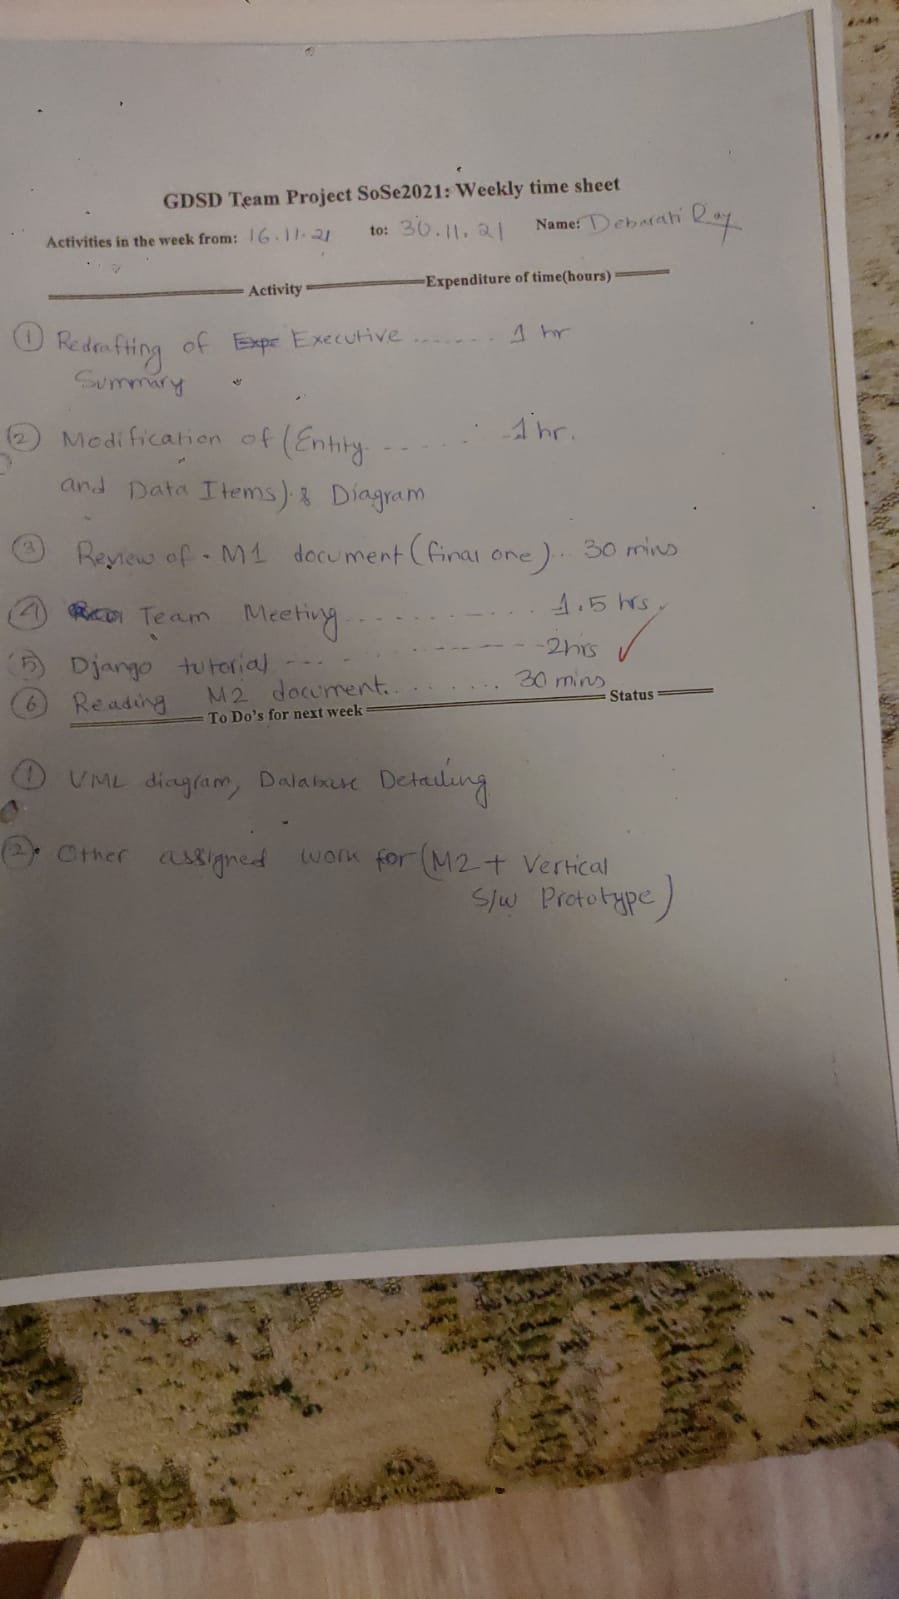 GDSD Team Project SoSe2021: Weekly time sheet
Activities in the week from: 16.11.21 to: 30.11.21 Name: Debarati Ray
Activity Expenditure of time(hours)
① Redrafting of Expe Executive ....... 1 hr
Summary
② Modification of (Entity ...... 1 hr.
and Data Items) & Diagram
③ Review of M1 document (final one)... 30 mins
④ Team Meeting ............ 1.5 hrs
⑤ Django tutorial ............ 2hrs ✓
⑥ Reading M2 document......... 30 mins
To Do's for next week Status
① UML diagram, Database Detailing
②. Other assigned work for (M2 + Vertical
S/W Prototype)